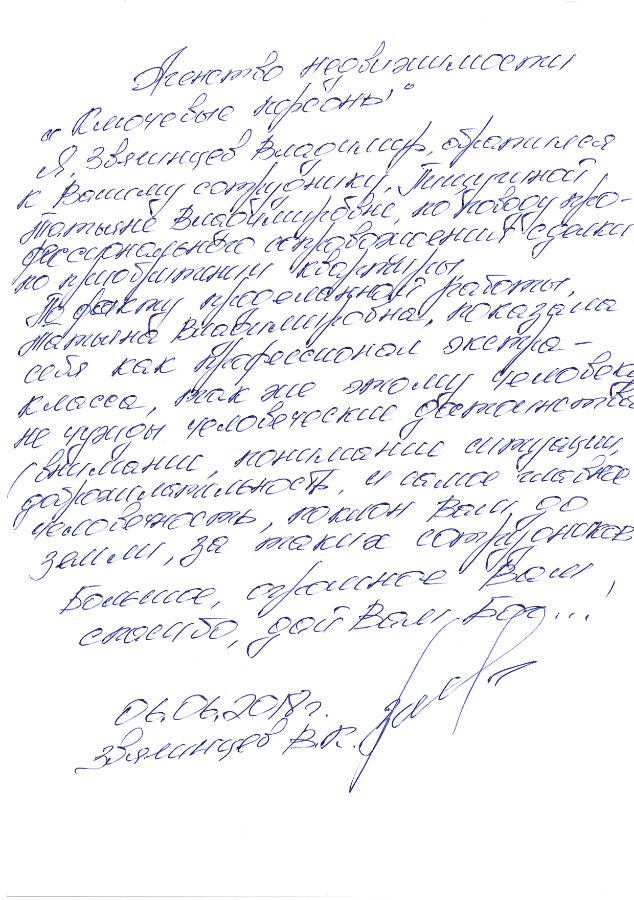 Агенство недвижимости
"Ключевые персоны"
Я, Звягинцев Владимир, обратился
к Вашему сотруднику, Тищулиной
Татьяне Владимировне, по поводу про-
фессионального сопровождения сделки
по приобритении квартиры.
По факту проделанной работы,
Татьяна Владимировна, показала
себя как профессионал экстра-
класса, так же этому человеку
не чужды человеческие достоинства
(внимании, понимании ситуации,
доброжилательность, и самое главное
человечность, поклон Вам, до
земли, за таких сотрудников
Большое, огромное Вам,
спасибо, дай Вам Бог...!
06.06.2018г.
Звягинцев В.К.